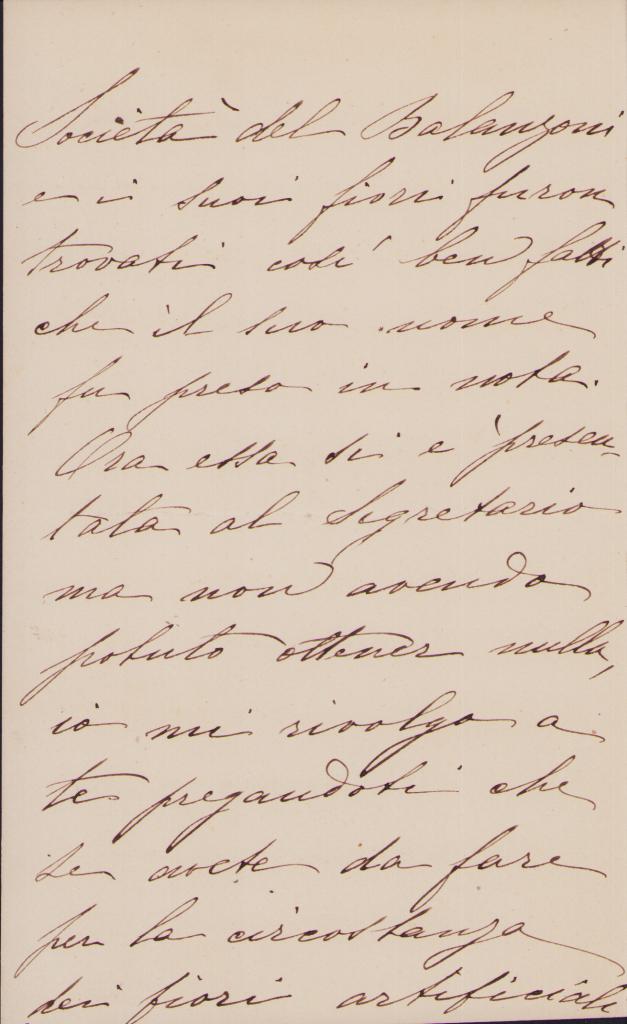 Società del Balanzoni
e i suoi fiori furon
trovati così ben fatti
che il suo nome
fu preso in nota.
Ora essa si è presen-
tata al Segretario
ma non avendo
potuto ottener nulla,
io mi rivolgo a
te pregandoti che
se avete da fare
per la circostanza
dei fiori artificiali